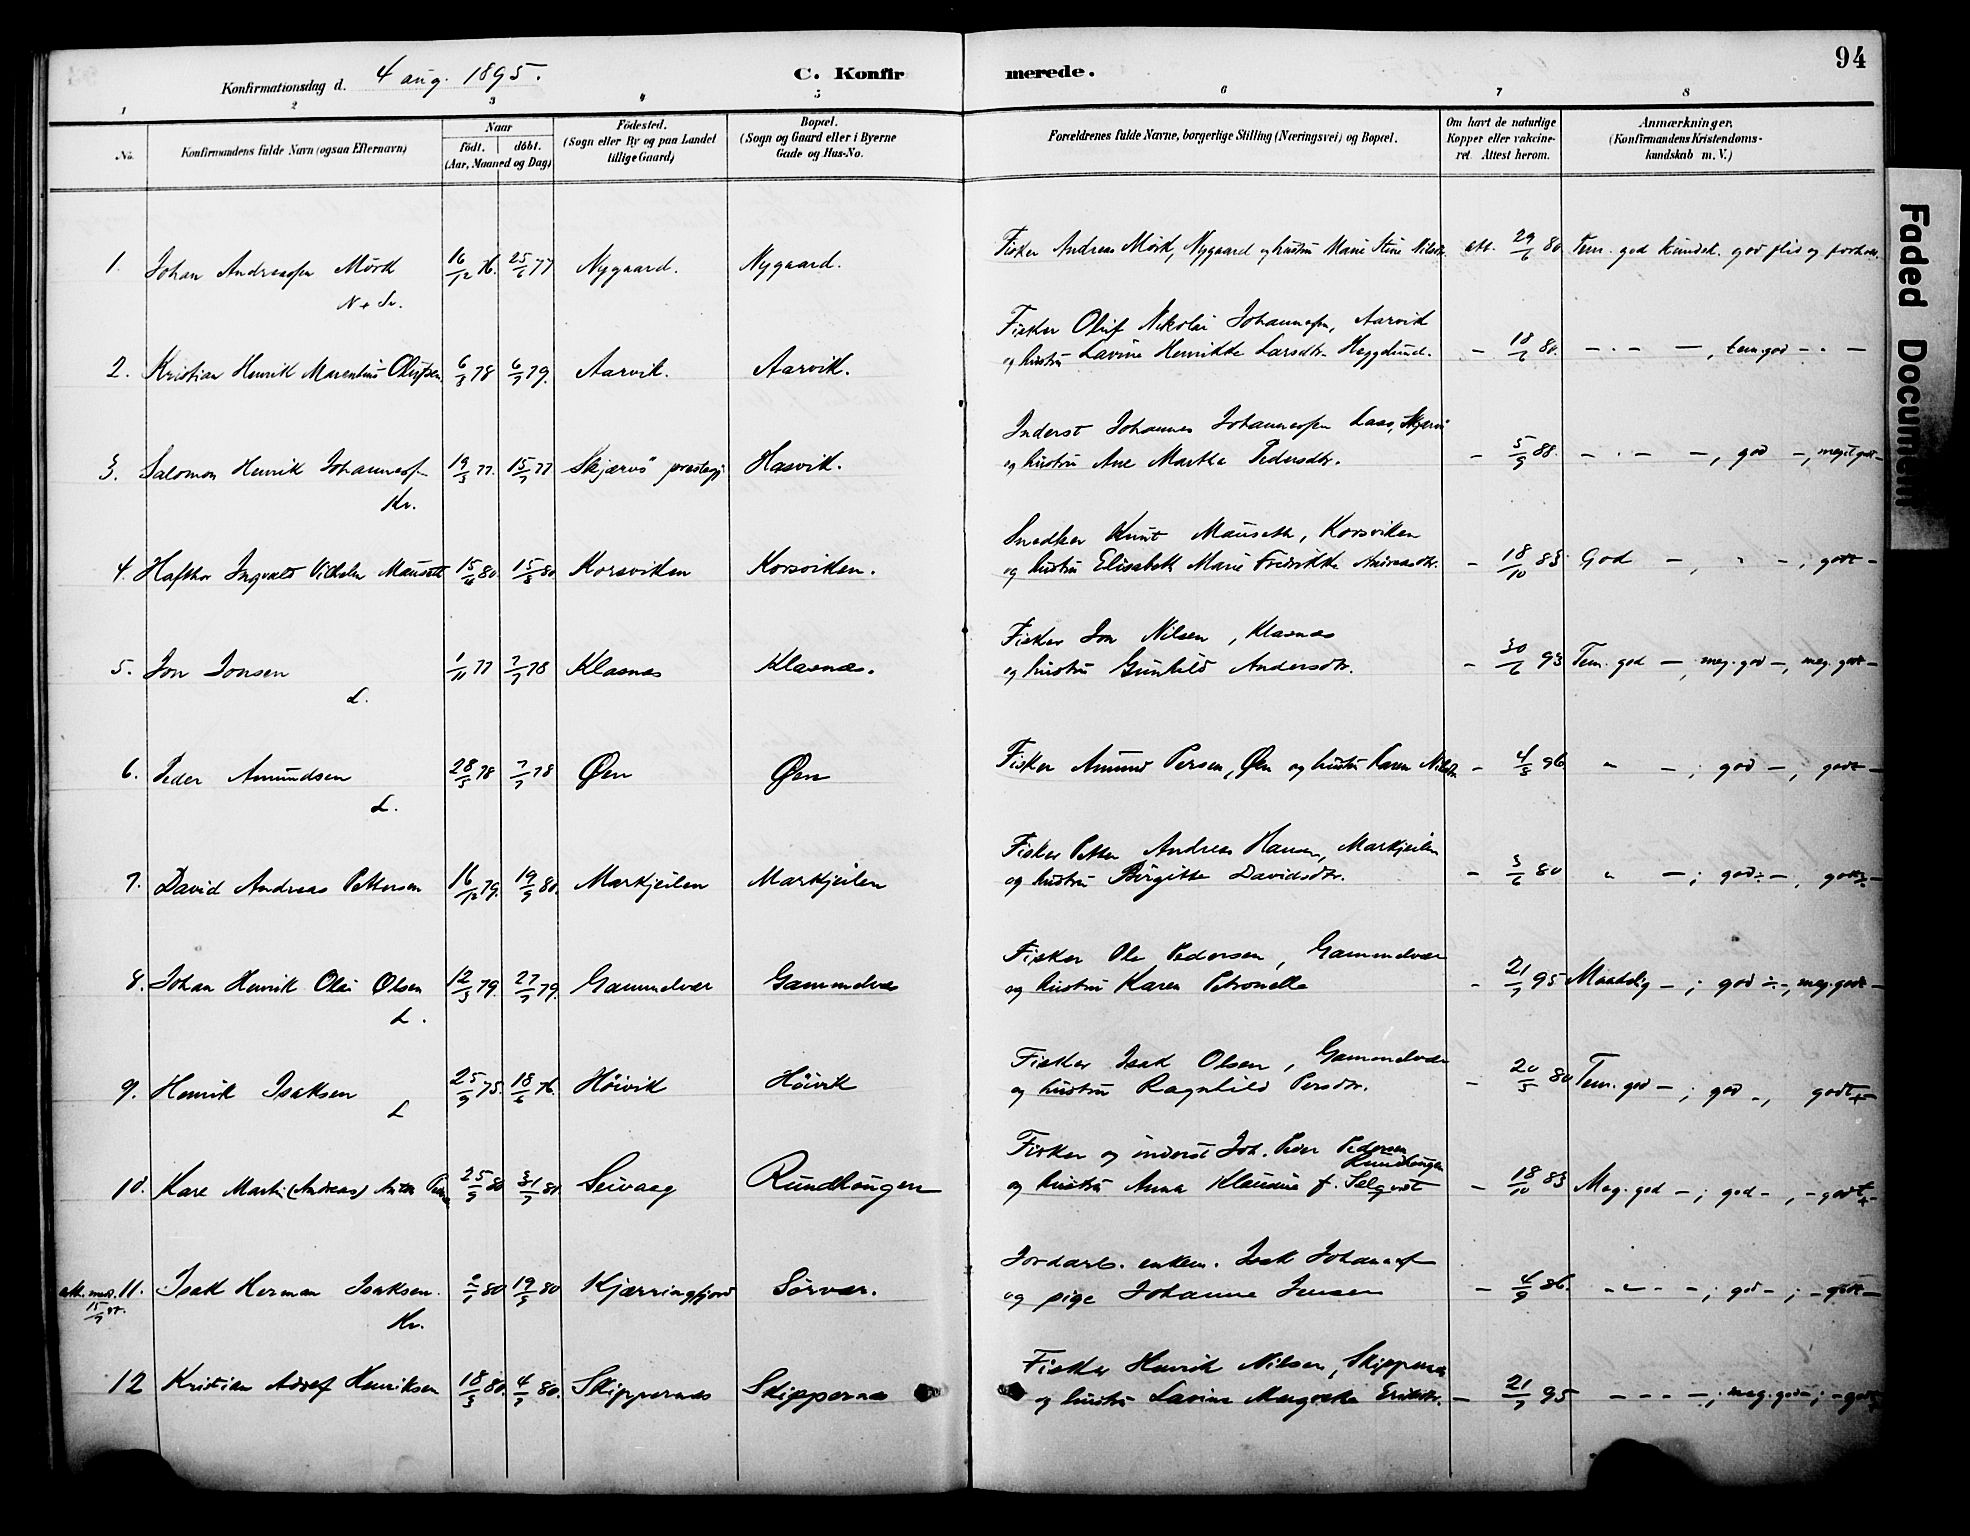 94
Konfirmationsdag d. 4 aug. 1895.
C. Konfirmerede.
1 2 3 4 5 6 7 8
No.
Konfirmandens fulde Navn (ogsaa Efternavn)
Naar
födt. döbt.
(Aar, Maaned og Dag)
Födested.
(Sogn eller By og paa Landet
tillige Gaard)
Bopæl.
(Sogn og Gaard eller i Byerne
Gade og Hus-No.
Forældrenes fulde Navne, borgerlige Stilling (Næringsvei) og Bopæl.
Om havt de naturlige
Kopper eller vakcine-
ret. Attest herom.
Anmærkninger.
(Konfirmandens Kristendoms-
kundskab m. V.)
Faded Document
Fisker Andreas Mörk, Nygaard og hustru Marie Stine Nilsdtr. att. 29/6 80 Tem. god kundsk. god flid og forhold.
1. Johan Andreassen Mörk 16/12 76. 25/6 77 Nygaard. Nygaard.
N + Sv.
Fisker Oluf Nikolai Johannessen, Aarvik
2. Kristian Henrik Marentius Olufsen. 6/3 78 6/7 79. Aarvik. Aarvik.
og hustru Lavine Henrikke Larsdtr. Heggelund. - 18/6 80. - . - -, tem. god - . -
Inderst Johannes Johannessen Laas, Skjervö
3. Salomon Henrik Johannessen 19/3 77. 15/7 77 Skjærvö prestegj. Hasvik.
og hustru Ane Martha Pedersdtr. - 5/9 88. - . - -, god -, meget godt -
Kv.
Snedker Knut Mauseth, Korsviken
4. Hafthor Ingvald Vilhelm Mauseth 15/4 80 15/8 80 Korsviken Korsviken.
og hustru Elisabeth Marie Fredrikke Andreasdtr. - 18/10 83 God -, " -, godt -
Fisker Jon Nilsen, Klasnæs
5. Jon Jonsen 1/11 77 7/7 78 Klasnæs Klasnæs.
og hustru Gunhild Andersdtr. - 30/6 93 Tem. god -, meg. god -, meg. godt -
L.
6. Peder Amundsen 28/3 78 7/7 78 Øen Øen
Fisker Amund Persen, Øen og hustru Karen Nilsdtr. - 4/8 96 " -; god -, godt -
L.
Fisker Petter Andreas Hansen, Markjeilen
7. David Andreas Pettersen 16/12 79. 19/9 80. Markjeilen Markjeilen
og hustru Birgitte Davidsdtr. - 3/6 80 " -; god÷ -, godt÷ -
Fisker Ole Pedersen, Gammelvær
8. Johan Henrik Olai Olsen 12/3 79. 27/7 79. Gammelvær Gammelvær
og hustru Karen Petronelle - 21/7 95 Maadelig -; god ÷ -, meg. godt -
L.
Fisker Isak Olsen, Gammelvær
9. Henrik Isaksen 25/9 75. 18/6 76. Höivik Höivik
og hustru Ragnhild Persdtr. - 20/5 80 Tem. god -; god -, godt + -
L
Fisker og inderst Joh. Peder Pedersen
Rundhougen
10. Kare Martin (Andreas) Anton 25/5 80 31/7 80. Seivaag Rundhougen
og hustru Anna Klaudine f. Selqvist - 18/10 83 Meg. god -; god -, - godt + -
Jordarb. enkem. Isak Johansen
att. med. 11. Isak Herman Isaksen. 80 19/9 80 Kjærringfjord Sörvær.
15/7 95.
og pige Johanne Jensen - 4/9 86. " - ; god -; - godt -
Kv.
Fisker Henrik Nilsen, Skippernæs
12 Kristian Adolf Henriksen 18/3 80. 4/7 80. Skippernæs Skippernæs
og hustru Lavine Margrethe Eriksdtr. - 21/7 95 - - - -; meg. god -; - godt +